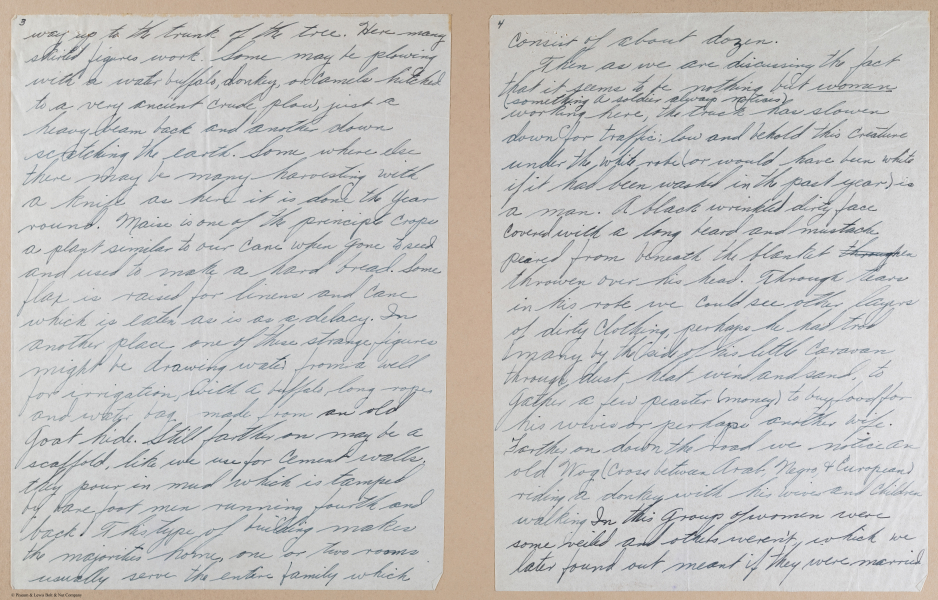 3
way up to the trunk of the tree. Here many
skirted figures work. Some may be plowing
with a water buffalo, donkey, or camels hitched
to a very ancient crude plow, just a
heavy beam back and another down
scratching the earth. Some where else
there may be many harvesting with
a knife as here it is done the year
round. Maise is one of the principle crops
a plant similar to our cane when gone to seed
and used to make a hard bread. Some
flax is raised for linens and cane
which is eaten as is as a delacy. In
another place one of these strange figures
might be drawing water from a well
for irrigation, with a buffalo, long rope
and water bag made from an old
Goat hide. Still farther on may be a
scaffold, like we use for cement walls,
they pour in mud which is tamped
by bare foot men running fourth and
back. This type of building makes
the majorities home, one or two rooms
usually serve the entire family which
4
consist of about dozen.
Then as we are discussing the fact
that it seems to be nothing but women
(something a soldier always notices)
working here, the truck has slowen
down for traffic; low and behold this creature
under the white robe (or would have been white
if it has been washed in the past year) is
a man. A black wrinkled dirty face
covered with a long beard and mustach
peared from beneath the blanket
throwen over his head. Through tears
in his robe we could see other layers
of dirty clothing, perhaps he has trod
many by the side of his little caravan
through dust, heat wind and sand, to
gather a few peaster (money) to buy food for
his wives or perhaps another wife.
Farther on down the road we notice an
old Wog (Cross between Arab, Negro & European)
riding a donkey with his wive and children
walking In this group of women were
some veiled and others weren't, which we
later found out meant if they were married
© Pearson & Lewis Bolt & Nut Company